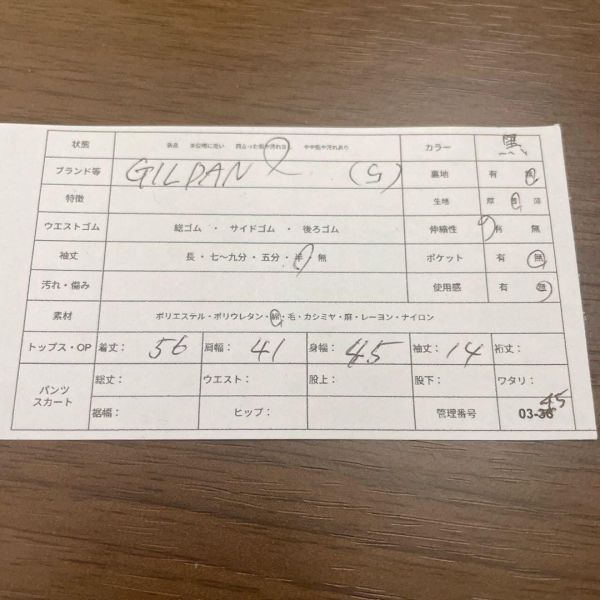 状態 新品 未使用に近い 目立った傷や汚れなし やや傷や汚れあり カラー 黒
ブランド等 GILDAN (S) 裏地 有 無
特徴 生地 厚 普 薄
ウエストゴム 総ゴム ・ サイドゴム ・ 後ろゴム 伸縮性 有 無
袖丈 長・七〜九分・五分・半・無 ポケット 有 無
汚れ・傷み 使用感 有 無
素材 ポリエステル・ポリウレタン・綿・毛・カシミヤ・麻・レーヨン・ナイロン
トップス・OP 着丈: 56 肩幅: 41 身幅: 45 袖丈: 14 裄丈:
パンツ スカート 総丈: ウエスト: 股上: 股下: ワタリ:
裾幅: ヒップ: 管理番号 03-45